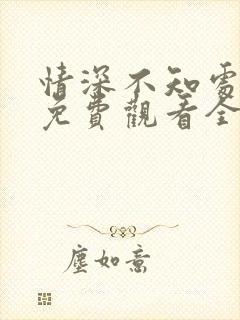 情深不知處
免費觀看全
塵如意